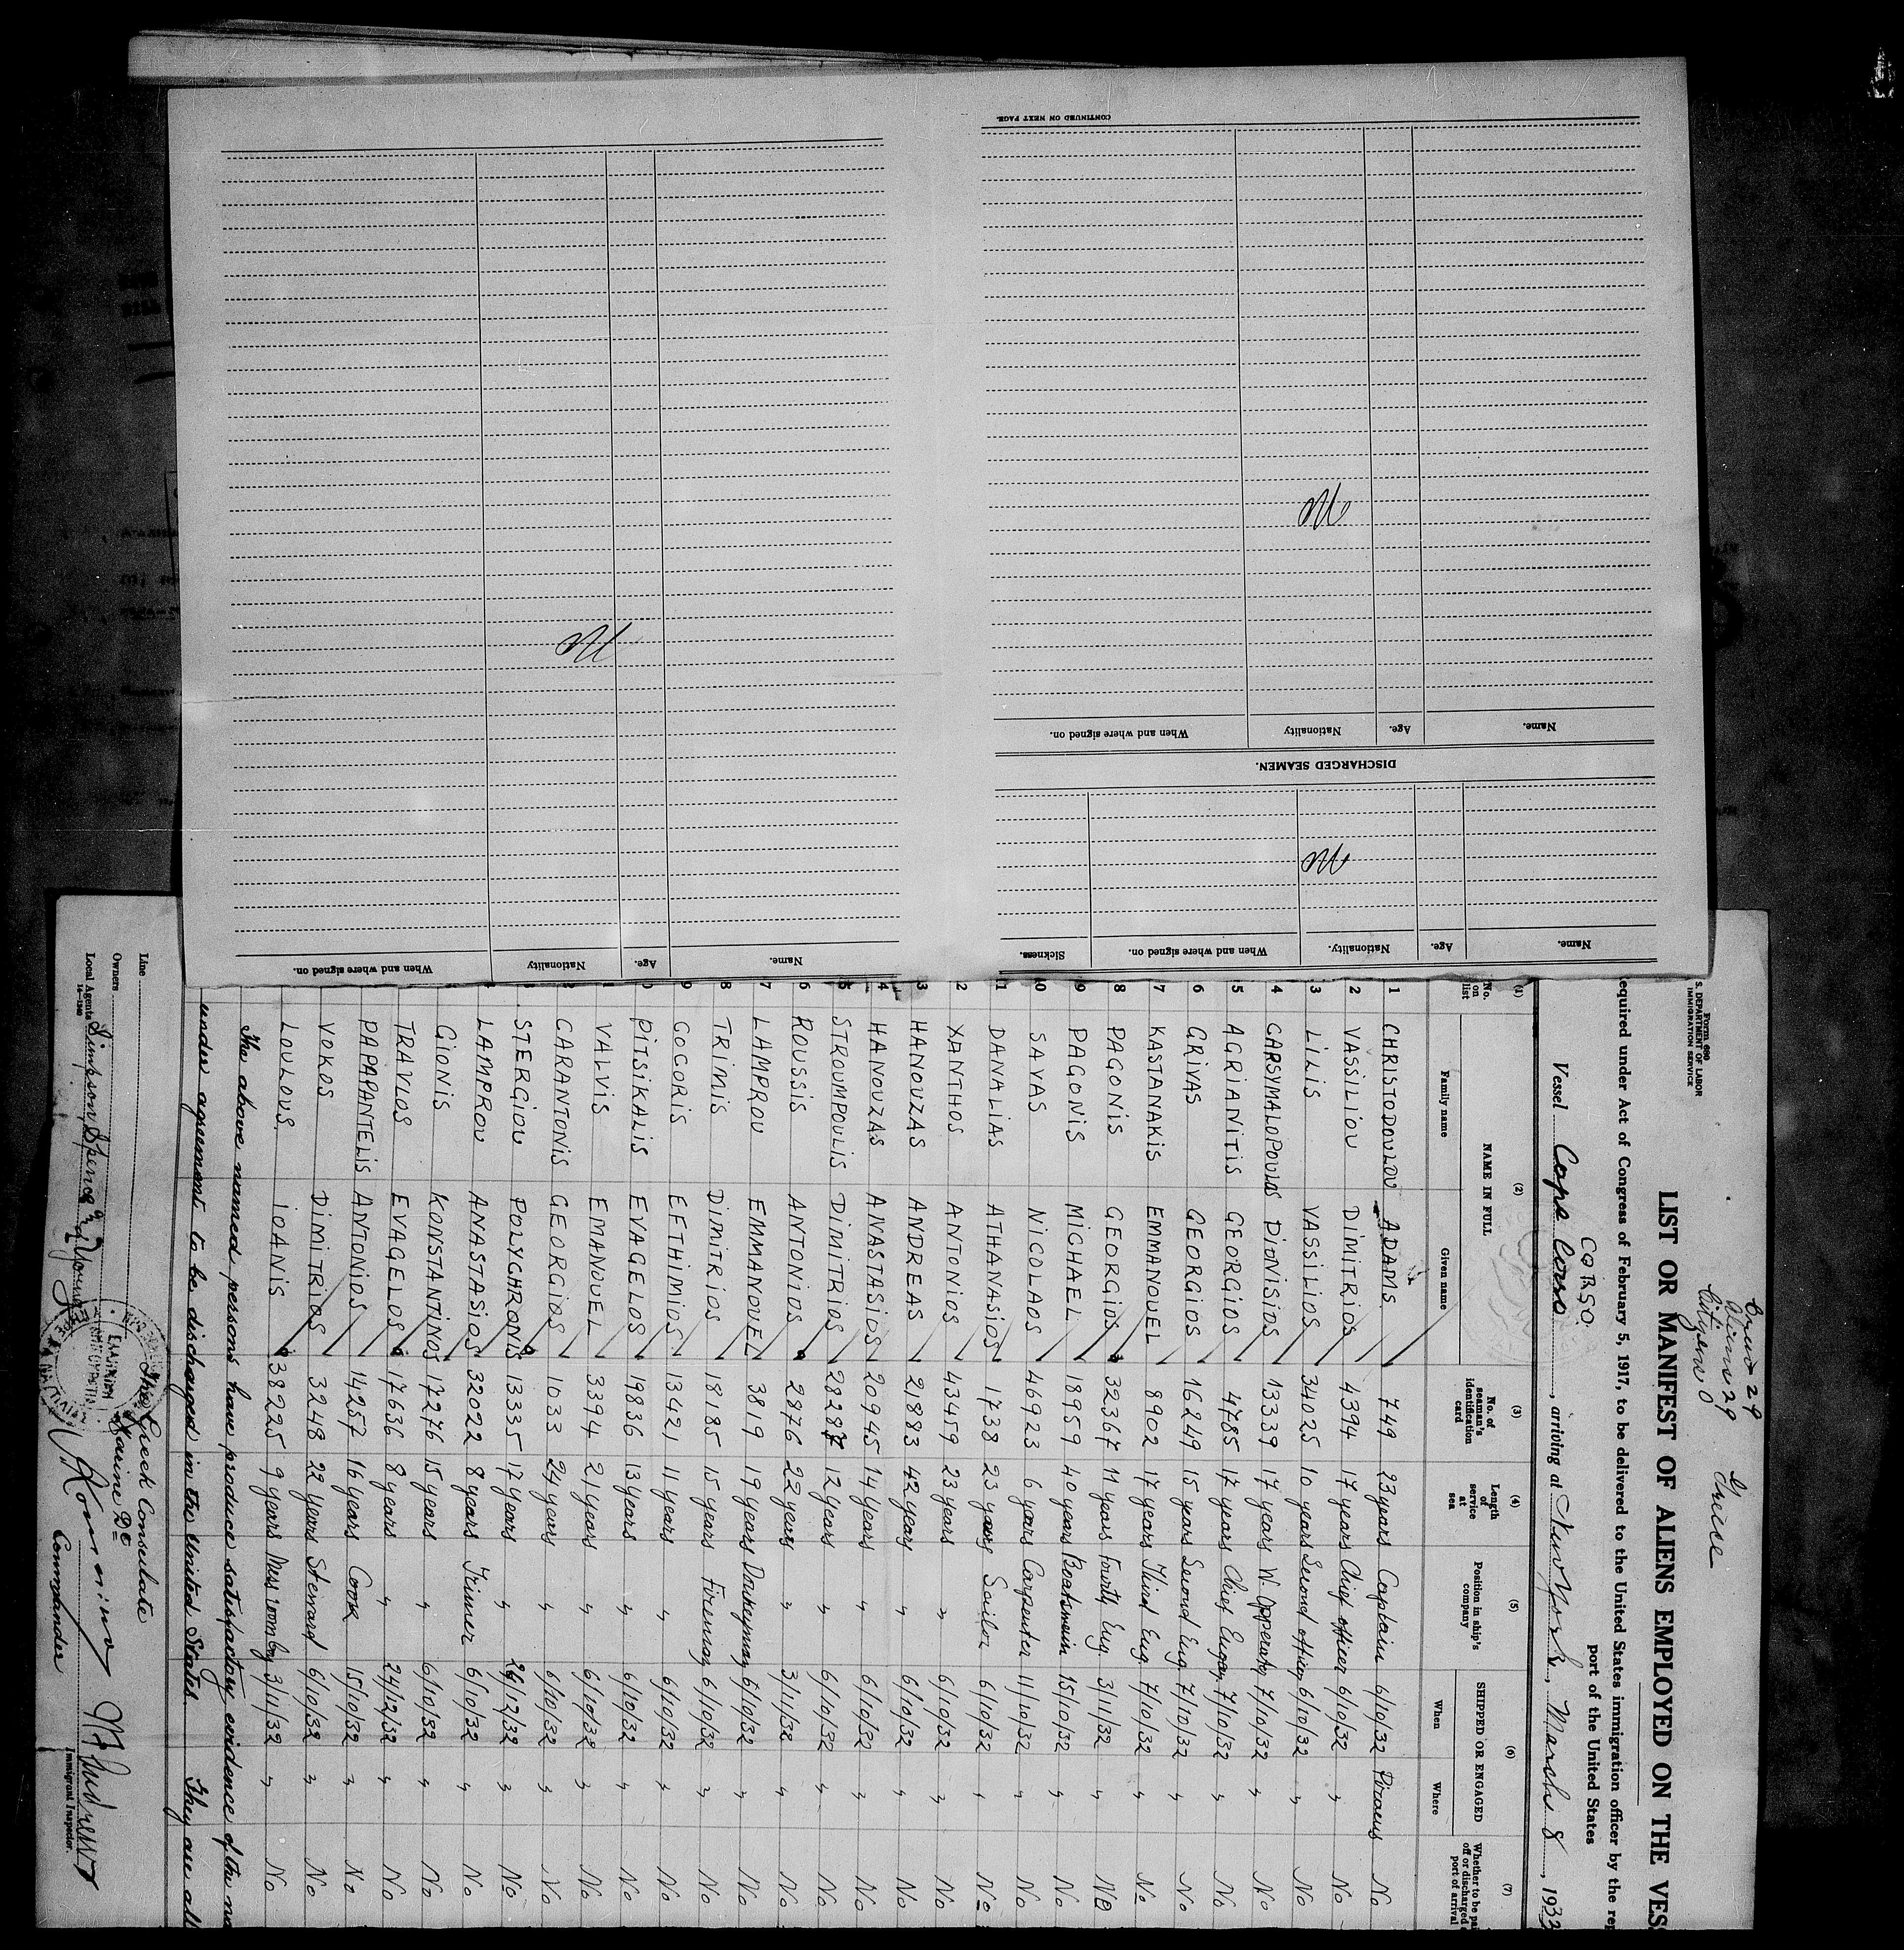 CONTINUED ON NEXT PAGE.
Nil
Nil
Name. Age. Nationality When and where signed on.
DISCHARGED SEAMEN.
Nil
Name. Age. Nationality. When and where signed on. Sickness.
Name. Age. Nationality When and where signed on.
Form 680
S. DEPARTMENT OF LABOR
IMMIGRATION SERVICE
Crew 29
Aliens 29
Citizens 0
Greece
LIST OR MANIFEST OF ALIENS EMPLOYED ON THE VESS
equired under Act of Congress of February 5, 1917, to be delivered to the United States immigration officer by the rep
port of the United States
CORSO
Vessel Cape Corso, arriving at New York, March 8, 1933
(1) (2) (3) (4) (5) (6) (7)
No. on list NAME IN FULL Family name Given name No. of seaman's identification card Length of service at sea Position in ship's company SHIPPED OR ENGAGED When Where Whether to be pai off or discharged port of arrival
1 CHRISTODOULOU ADAMS. 749 23 years Captain 6/10/32 Piraeus No
2 VASSILIOU DIMITRIOS 4394 17 years Chief officer 6/10/32 " No
3 LILIS VASSILIOS 34025 10 years Second officer 6/10/32 " No
4 CARSYMALOPOULOS DIONISIOS 13339 17 years W. Opperator 7/10/32 " No
5 AGRIANITIS GEORGIOS 4785 17 years Chief Engen. 7/10/32 " No
6 GRIVAS GEORGIOS 16249 15 years Second Eng. 7/10/32 " No
7 KASTANAKIS EMMANOUEL 8902 17 years Third Eng. 7/10/32 " No
8 PAGONIS GEORGIOS 32367 11 years Fourth Eng. 3/11/32 " No
9 PAGONIS MICHAEL 18959 40 years Boatswain 15/10/32 " No
10 SAVAS NICOLAOS 46923 6 years Carpenter 11/10/32 " No
11 DANALIAS ATHANASIOS 1738 23 years Sailor 6/10/32 " No
2 XANTHOS ANTONIOS 43459 23 years " 6/10/32 " No
3 HANOUZAS ANDREAS 21883 42 years " 6/10/32 " No
4 HANOUZAS ANASTASIOS 20945 14 years " 6/10/32 " No
5 STROUMPOULIS DIMITRIOS 28287 12 years " 6/10/32 " No
6 ROUSSIS ANTONIOS 2876 22 years " 3/11/32 " No
7 LAMPROU EMMANOUEL 3819 19 years Donkeyman 6/10/32 " No
8 TRIMIS DIMITRIOS 18185 15 years Fireman 6/10/32 " No
9 GOGORIS EFTHIMIOS 13421 11 years " 6/10/32 " No
0 PITSIKALIS EVAGELOS 19836 13 years " 6/10/32 " No
1 VALVIS EMANOUEL 3394 21 years " 6/10/32 " No
2 CARANTONIS GEORGIOS 1033 24 years " 6/10/32 " No
3 STERGIOU POLYCHRONIS 13335 17 years " 24/12/32 " No
LAMPROU ANASTASIOS 32022 8 years Trimer 6/10/32 " No
GIONIS KONSTANTINOS 17276 15 years " 6/10/32 " No
TRAVLOS EVAGELOS 17636 8 years " 24/12/32 " No
PAPAPANTELIS ANTONIOS 14257 16 years Cook 15/10/32 " No
VOKOS DIMITRIOS 3248 22 years Steward 6/10/32 " No
LOULOUS. IOANIS 38225 9 years Mess roomboy 3/11/32 " No
The above named persons have produce satisfactory evidence of the na
under agreement to be discharged in the United States They are all
The Greek Consulate
Marine De
Commander
Line
Owners
Local Agents Simpson, Spence & Young
14—1240
Immigrant Inspector.